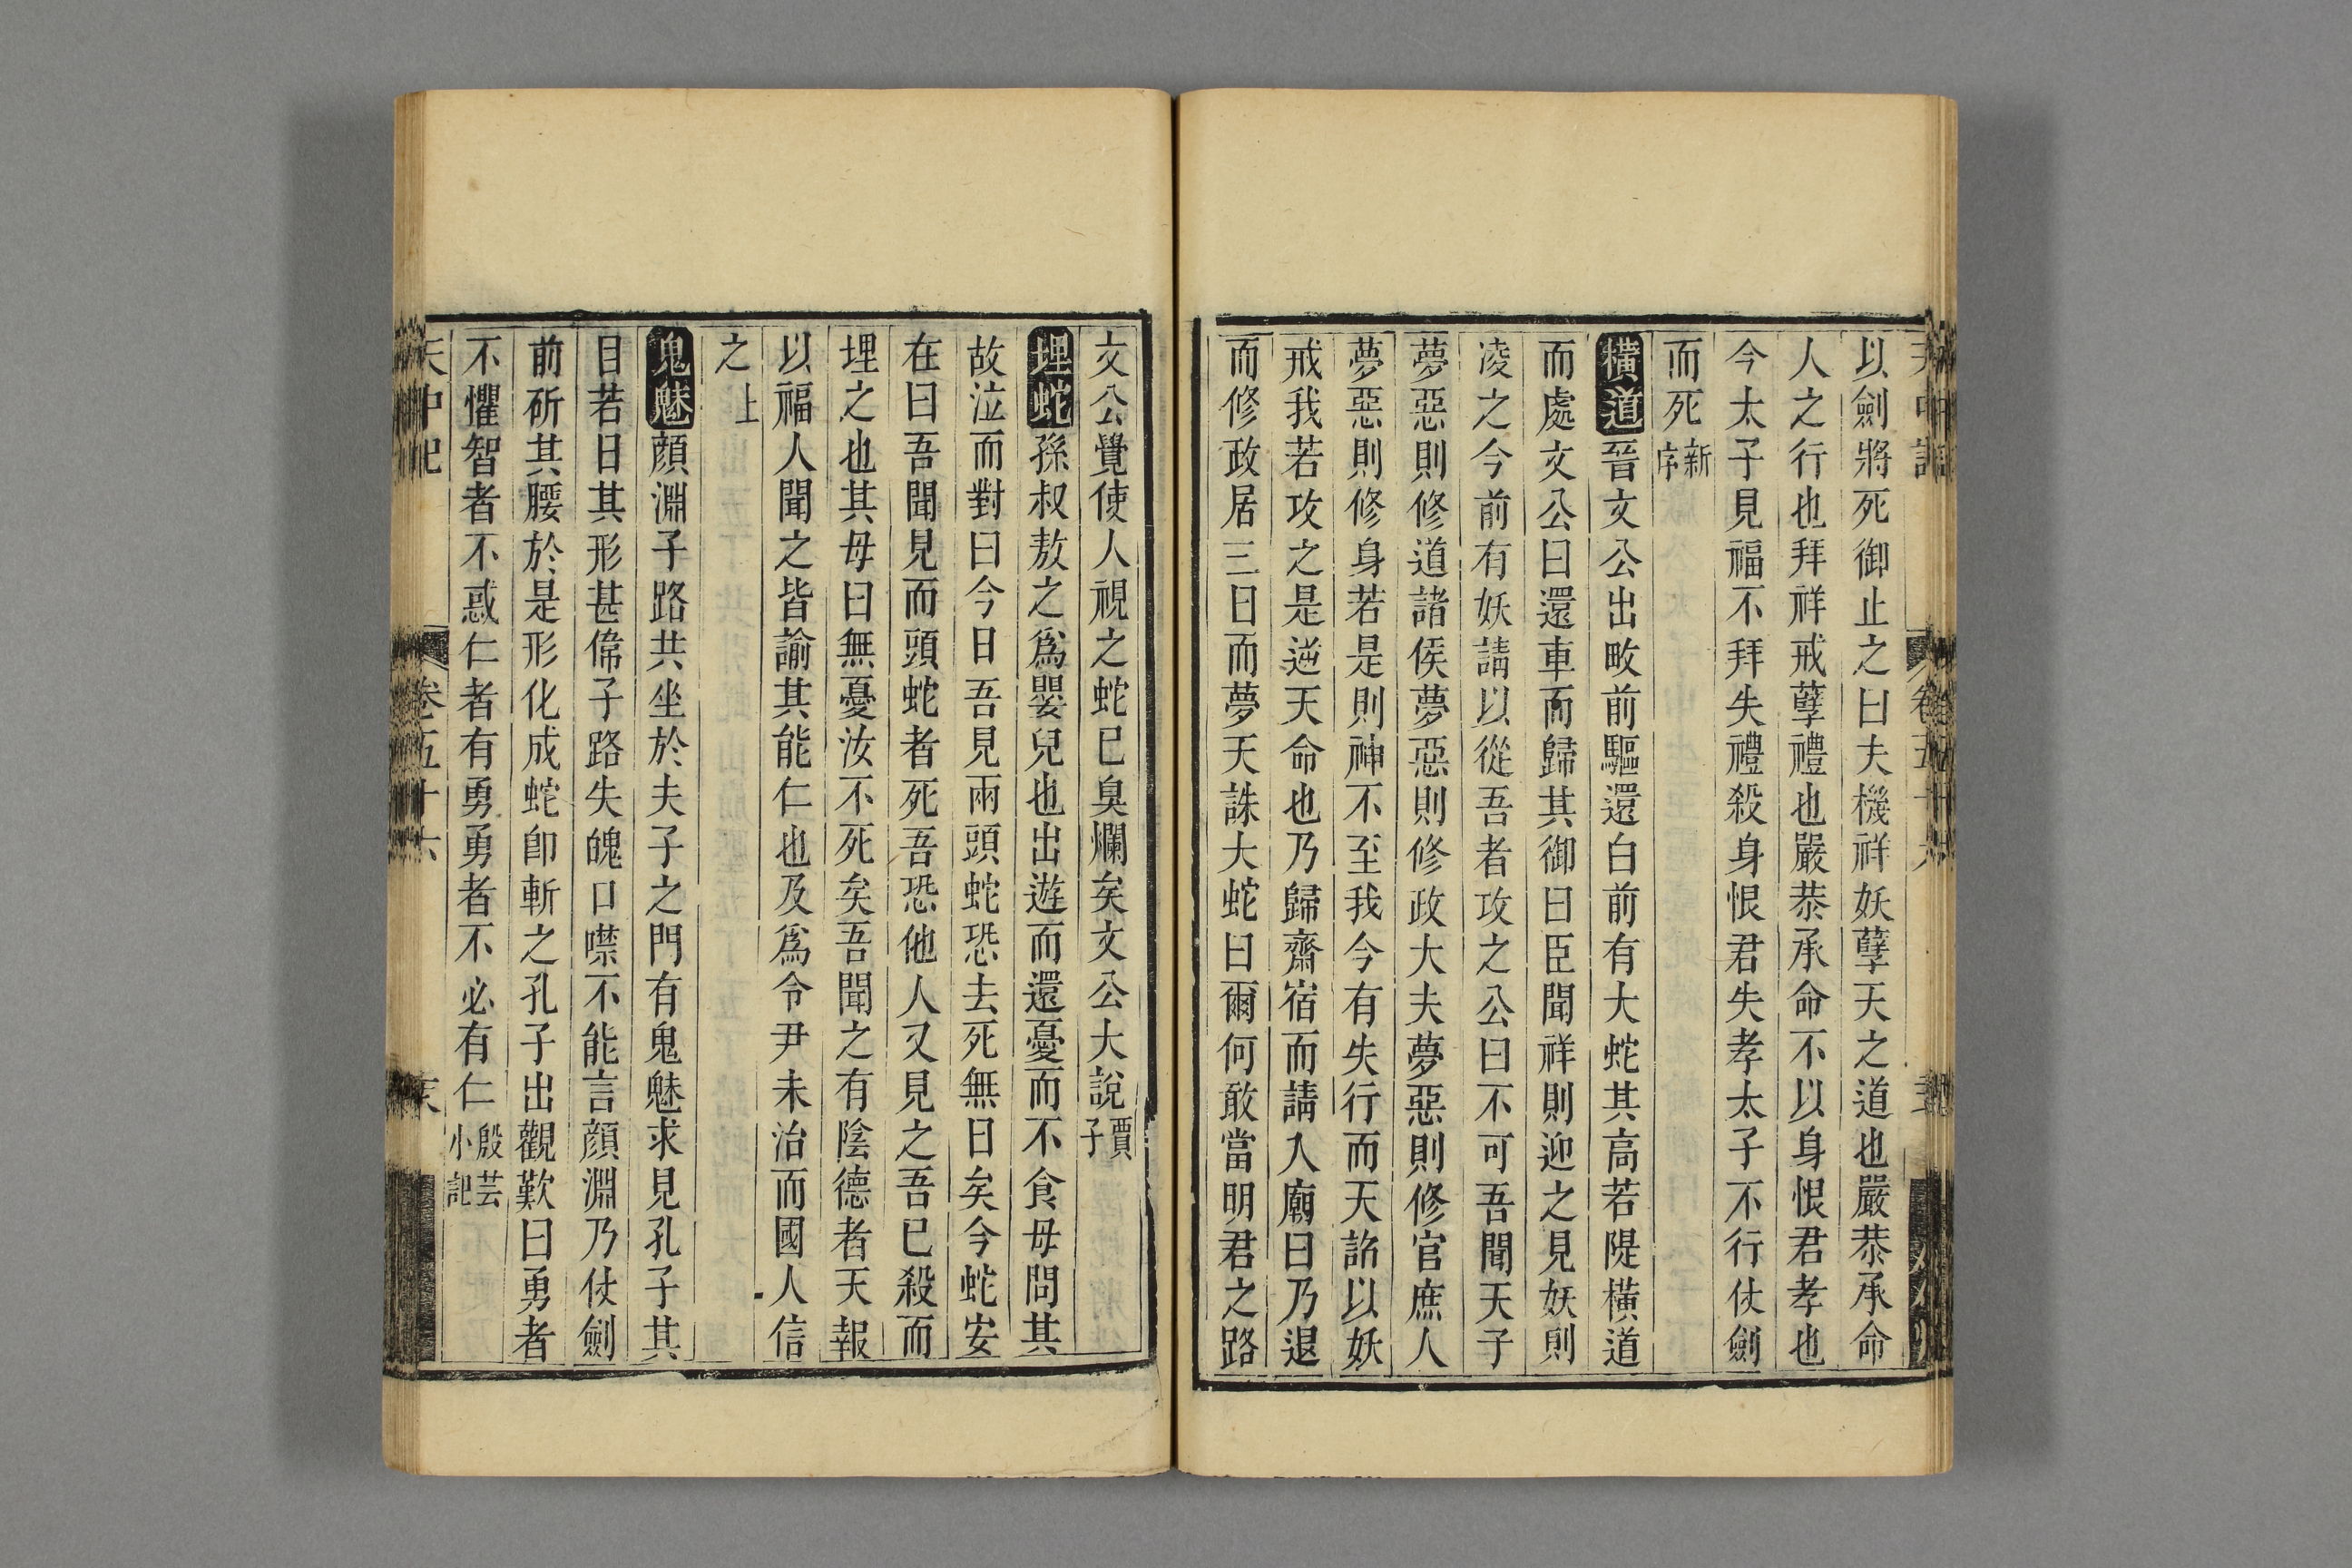 以劍將死御止之曰夫機祥妖孽天之道也嚴恭承命
人之行也拜祥戒孽禮也嚴恭承命不以身恨君孝也
今太子見福不拜失禮殺身恨君失孝太子不行仗劍
而死新序
橫道晉文公出畋前驅還白前有大蛇其高若隄橫道
而處文公曰還車而歸其御曰臣聞祥則迎之見妖則
凌之今前有妖請以從吾者攻之公曰不可吾聞天子
夢惡則修道諸侯夢惡則修政大夫夢惡則修官庶人
夢惡則修身若是則神不至我今有失行而天諂以妖
戒我若攻之是逆天命也乃歸齋宿而請入廟曰乃退
而修政居三日而夢天誅大蛇曰爾何敢當明君之路
文公覺使人視之蛇已臭爛矣文公大說賈子
埋蛇孫叔敖之爲嬰兒也出遊而還憂而不食母問其
故泣而對曰今日吾見兩頭蛇恐去死無日矣今蛇安
在曰吾聞見而頭蛇者死吾恐他人又見之吾已殺而
埋之也其母曰無憂汝不死矣吾聞之有陰德者天報
以福人聞之皆諭其能仁也及爲令尹未治而國人信
之上
鬼魅顔淵子路共坐於夫子之門有鬼魅求見孔子其
目若日其形甚偉子路失魄口噤不能言顔淵乃仗劍
前斫其腰於是形化成蛇卽斬之孔子出觀歎曰勇者
不懼智者不惑仁者有勇勇者不必有仁殷芸小記
天中記 卷五十六